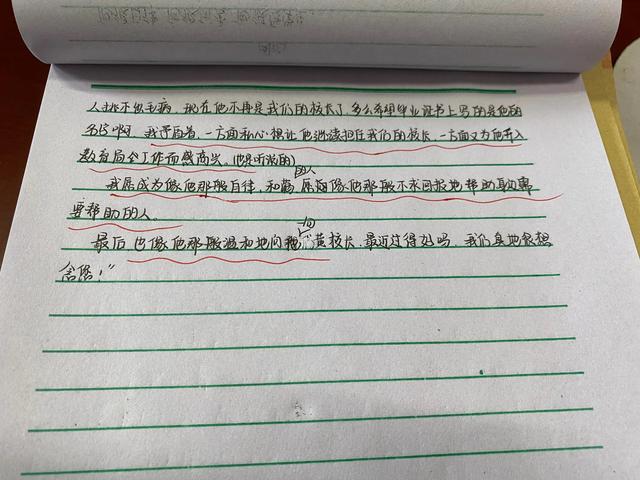 人挑不出毛病，现在他不再是我们的校长了，多么希望毕业证书上写的是他的
名字啊，我矛盾着，一方面私心想让他继续担任我们的校长，一方面又为他升入
教育局工作而感高兴。(也是听说的)
我愿成为像他那般自律，和蔼的人，愿意像他那般不求回报地帮助
要帮助的人。
最后 也像他那般温和地问一句"黄校长，最近过得好吗，我们 很想
念您！"